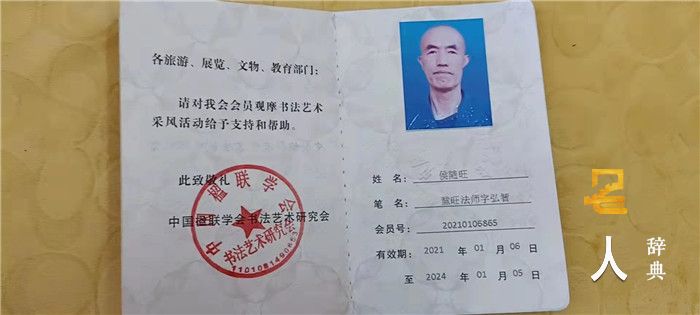 各旅游、展览、文物、教育部门：
请对我会会员观摩书法艺术
采风活动给予支持和帮助。
此致敬礼
中国楹联学会书法艺术研究会
中国楹联学会
书法艺术研究会
姓 名： 侯随旺
笔 名： 慧旺法师字弘智
会员号： 20210106865
有效期： 2021 年 01 月 06 日
至 2024 年 01 月 05 日
名人
辞典